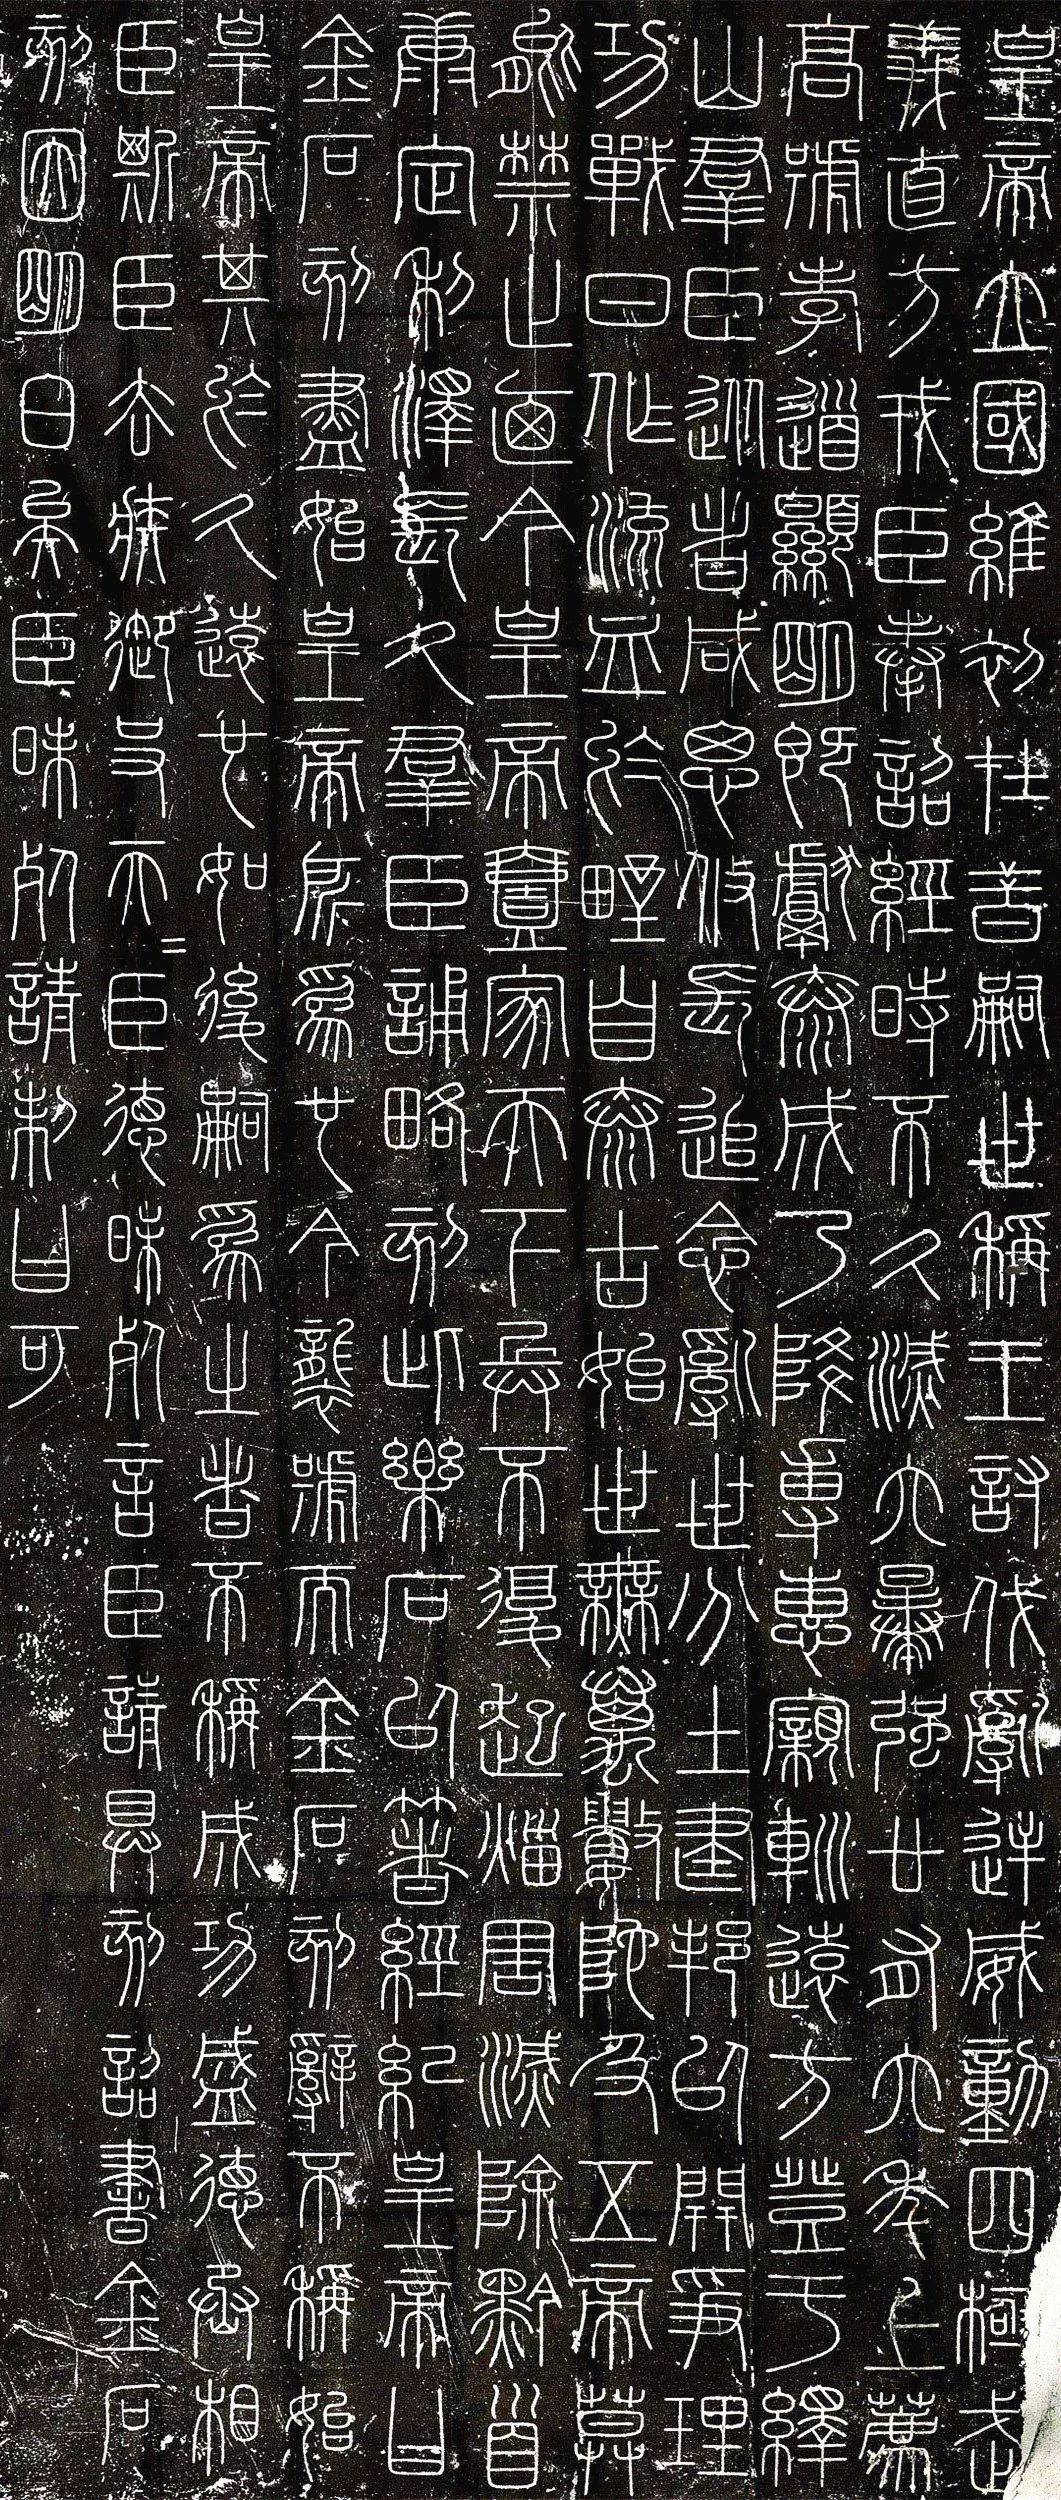 皇帝立國維初在昔嗣世稱王討伐亂逆威動四極武
義直方戎臣奉詔經時不久滅六暴強廿有六年上薦
高號孝道顯明既獻泰成乃降專惠親巡遠方登于繹
山羣臣從者咸思攸長追念亂世分土建邦以開爭理
功戰日作流血於野自泰古始世無萬數陀及五帝莫
能禁止迺今皇帝壹家天下兵不復起災害滅除黔首
康定利澤長久羣臣誦略刻此樂石以著經紀皇帝曰
金石刻盡始皇帝所為也今襲號而金石刻辭不稱始
皇帝其於久遠也如後嗣為之者不稱成功盛德丞相
臣斯臣去疾御史夫=臣德昧死言臣請具刻詔書金石
刻因明白矣臣昧死請制曰可